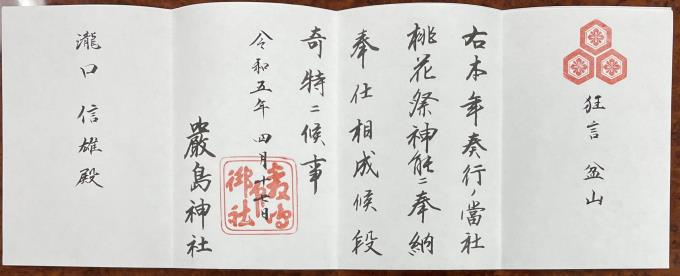 狂言 盆山
右本年奏行ノ當社
桃花祭神能ニ奉納
奉仕相成候段
奇特ニ候事
令和五年 四月十七日
嚴島神社
瀧口 信雄殿